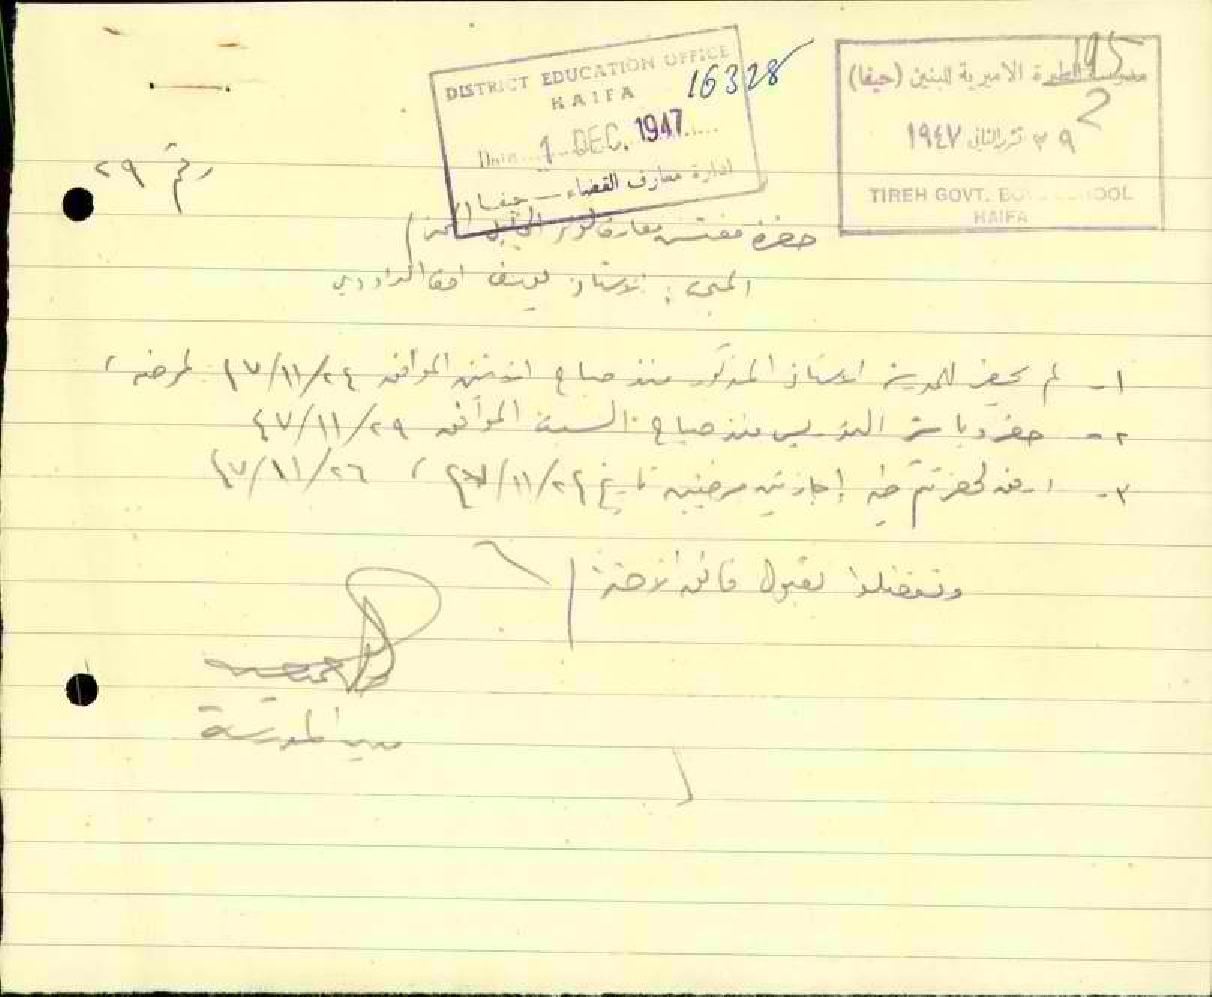 DISTRICT EDUCATION OFFICE
HAIFA
16328
Date 1 DEC. 1947
ادارة معارف القضاء - حيفا
195
مدرسة الطيرة الاميرية للبنين (حيفا)
2
٢٩ تشرين الثاني ١٩٤٧
TIREH GOVT. BOYS SCHOOL
HAIFA
رقم ٢٩
حضرة مفتش معارف لواء الجليل المحترم
الاستاذ يوسف الداودي
١- لم يحضر للمدرسة الاستاذ المذكور منذ صباح الاثنين الموافق ٤٧/١١/٢٤ لمرضه،
٢- حضر وباشر التدريس منذ صباح السبت الموافق ٤٧/١١/٢٩
٣- ارفق لحضرتكم طيه إجازتين مرضيتين تاريخ ٤٧/١١/٢٤، ٤٧/١١/٢٦
وتفضلوا بقبول فائق الاحترام
مدير المدرسة